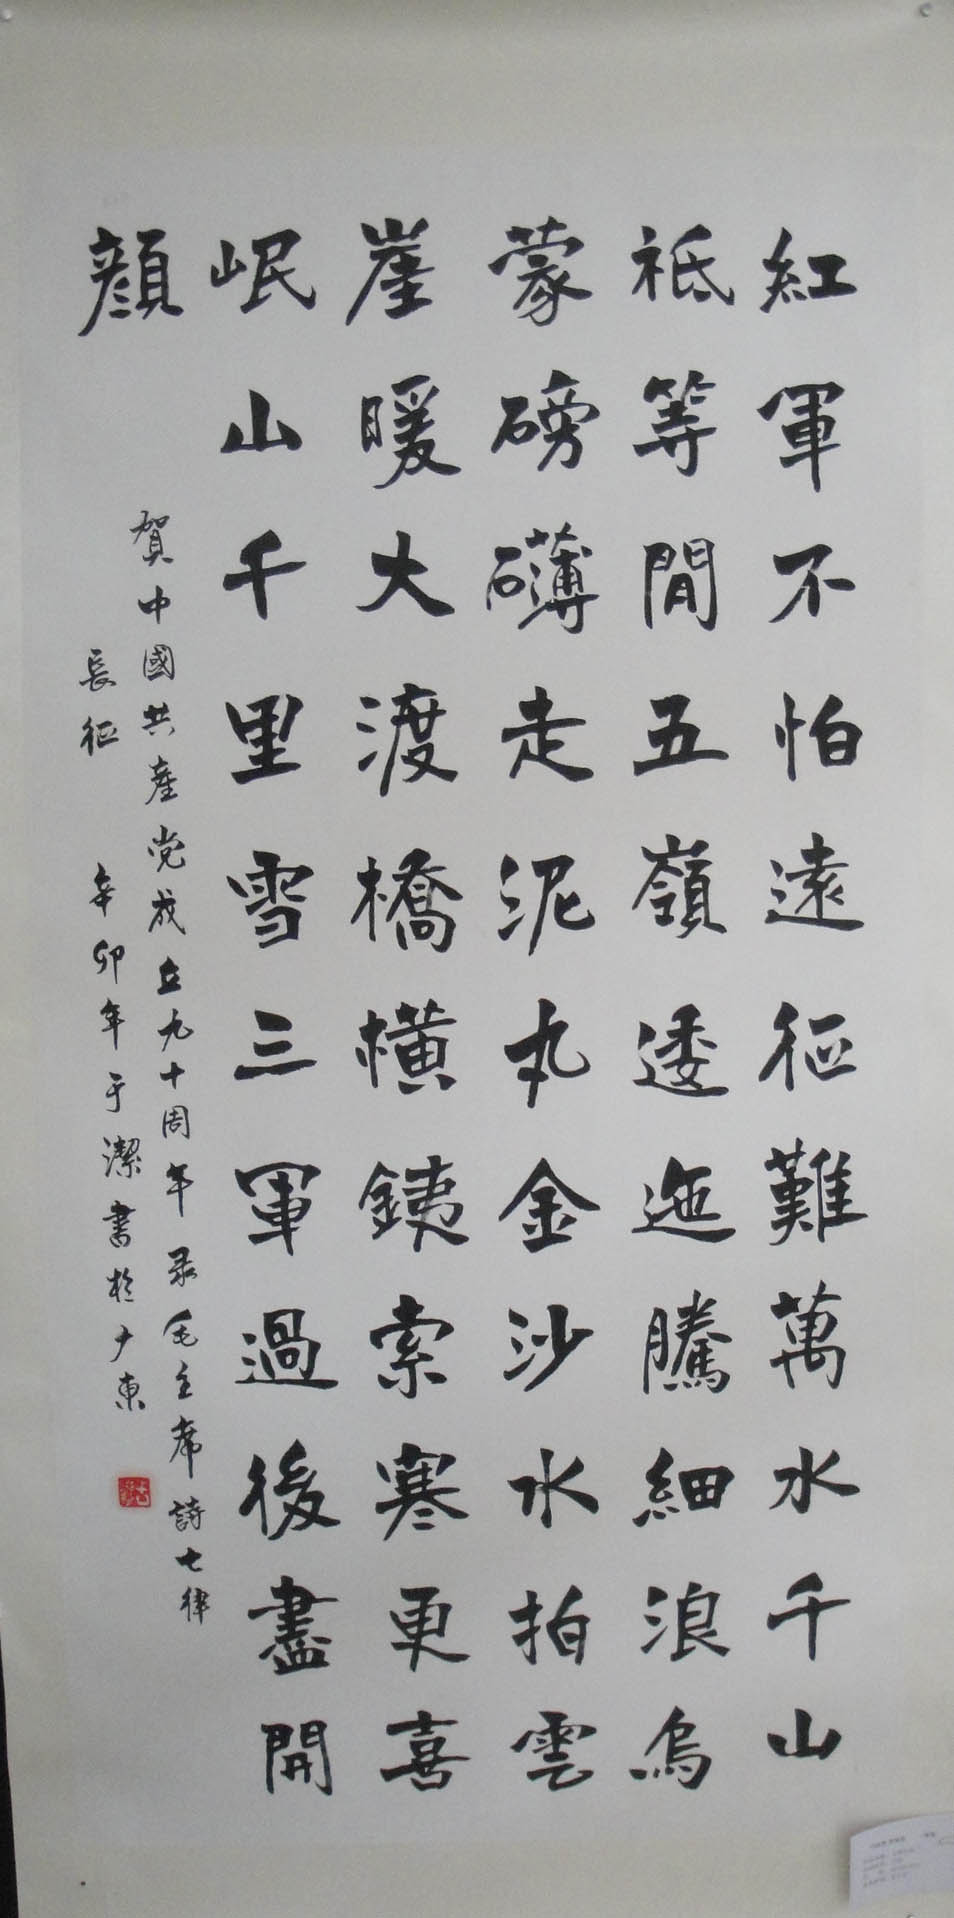 紅軍不怕遠征難萬水千山
祗等閒五嶺逶迤騰細浪烏
蒙磅礴走泥丸金沙水拍雲
崖暖大渡橋橫銕索寒更喜
岷山千里雪三軍過後盡開
顔
賀中國共產党成立九十周年录毛主席詩七律
長征 辛卯年于潔書於